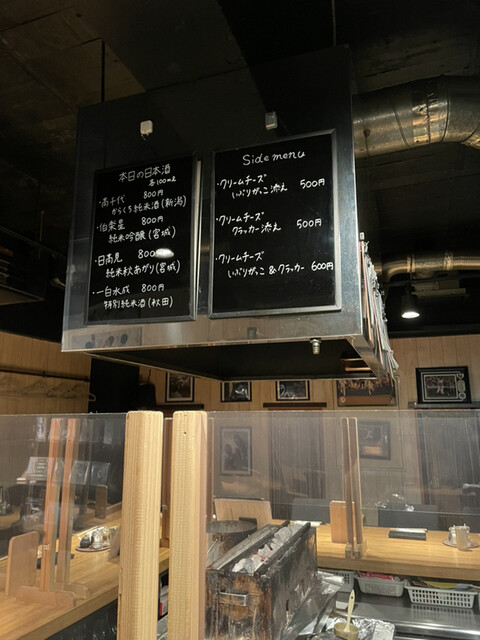 本日の日本酒
各100mL
・高千代 800円
からくち純米酒(新潟)
・伯楽星 800円
純米吟醸(宮城)
・日高見 800円
純米秋あがり(宮城)
・一白水成 800円
特別純米酒(秋田)
Side menu
・クリームチーズ
いぶりがっこ添え 500円
・クリームチーズ
クラッカー添え 500円
・クリームチーズ
いぶりがっこ&クラッカー 600円